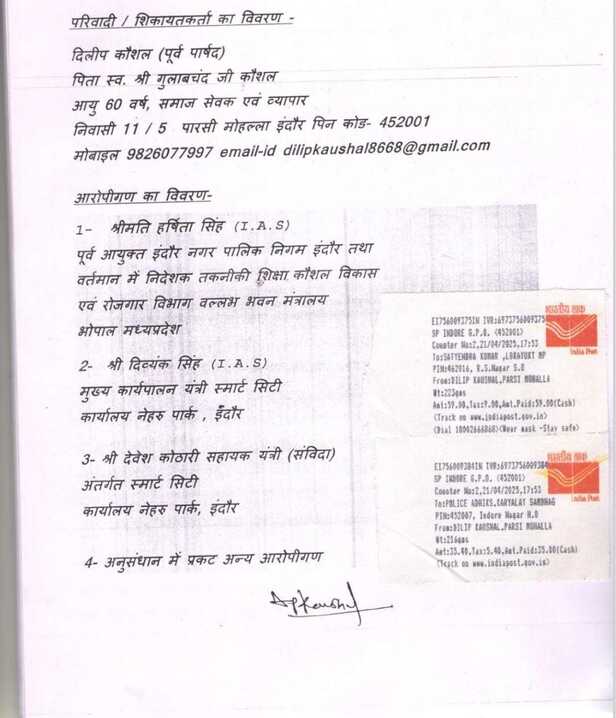 परिवादी / शिकायतकर्ता का विवरण -
दिलीप कौशल (पूर्व पार्षद)
पिता स्व. श्री गुलाबचंद जी कौशल
आयु 60 वर्ष, समाज सेवक एवं व्यापार
निवासी 11 / 5 पारसी मोहल्ला इंदौर पिन कोड- 452001
मोबाइल 9826077997 email-id dilipkaushal8668@gmail.com
आरोपीगण का विवरण-
1- श्रीमति हर्षिता सिंह (I.A.S)
पूर्व आयुक्त इंदौर नगर पालिक निगम इंदौर तथा
वर्तमान में निदेशक तकनीकी शिक्षा कौशल विकास
एवं रोजगार विभाग वल्लभ भवन मंत्रालय
भोपाल मध्यप्रदेश
2- श्री दिव्यंक सिंह (I.A.S)
मुख्य कार्यपालन यंत्री स्मार्ट सिटी
कार्यालय नेहरु पार्क , इँदौर
3- श्री देवेश कोठारी सहायक यंत्री (संविदा)
अंतर्गत स्मार्ट सिटी
कार्यालय नेहरु पार्क, इंदौर
4- अनुसंधान में प्रकट अन्य आरोपीगण
भारतीय डाक
India Post
EI756009375IN IVR:6973756009375
SP INDORE G.P.O. <452001>
Counter No:2,21/04/2025,17:53
To:SATYENDRA KUMAR ,LOKAYUKT MP
PIN:462016, R.S.Nagar S.O
From:DILIP KAUSHAL,PARSI MOHALLA
Wt:223gms
Amt:59.00,Tax:9.00,Amt.Paid:59.00(Cash)
(Track on www.indiapost.gov.in)
(Dial 18002666868)<Wear mask -Stay safe>
भारतीय डाक
India Post
EI756009384IN IVR:6973756009384
SP INDORE G.P.O. <452001>
Counter No:2,21/04/2025,17:53
To:POLICE ADHIKS,KARYALAY
PIN:452007, Indore Nagar H.O
From:DILIP KAUSHAL,PARSI MOHALLA
Wt:216gms
Amt:35.40,Tax:5.40,Amt.Paid:35.00(Cash)
(Track on www.indiapost.gov.in)